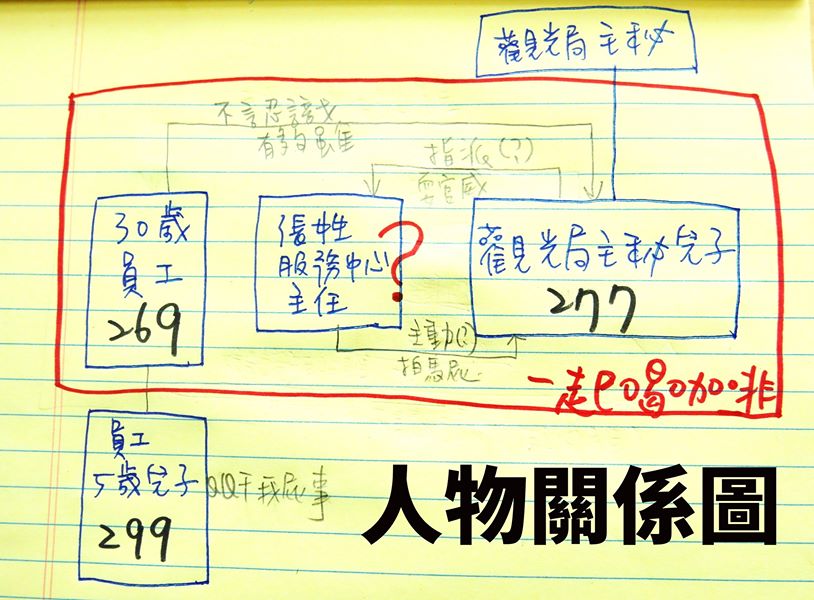 觀光局主秘
不認忍該
有多雖
指派(?)
耍官威
30歲
員工
269
張姓
服務中心
主任
?
觀光局主秘兒子
277
主動(?)
拍馬屁
一起喝咖啡
員工
5歲兒子
299
QQ干我屁事
人物關係圖